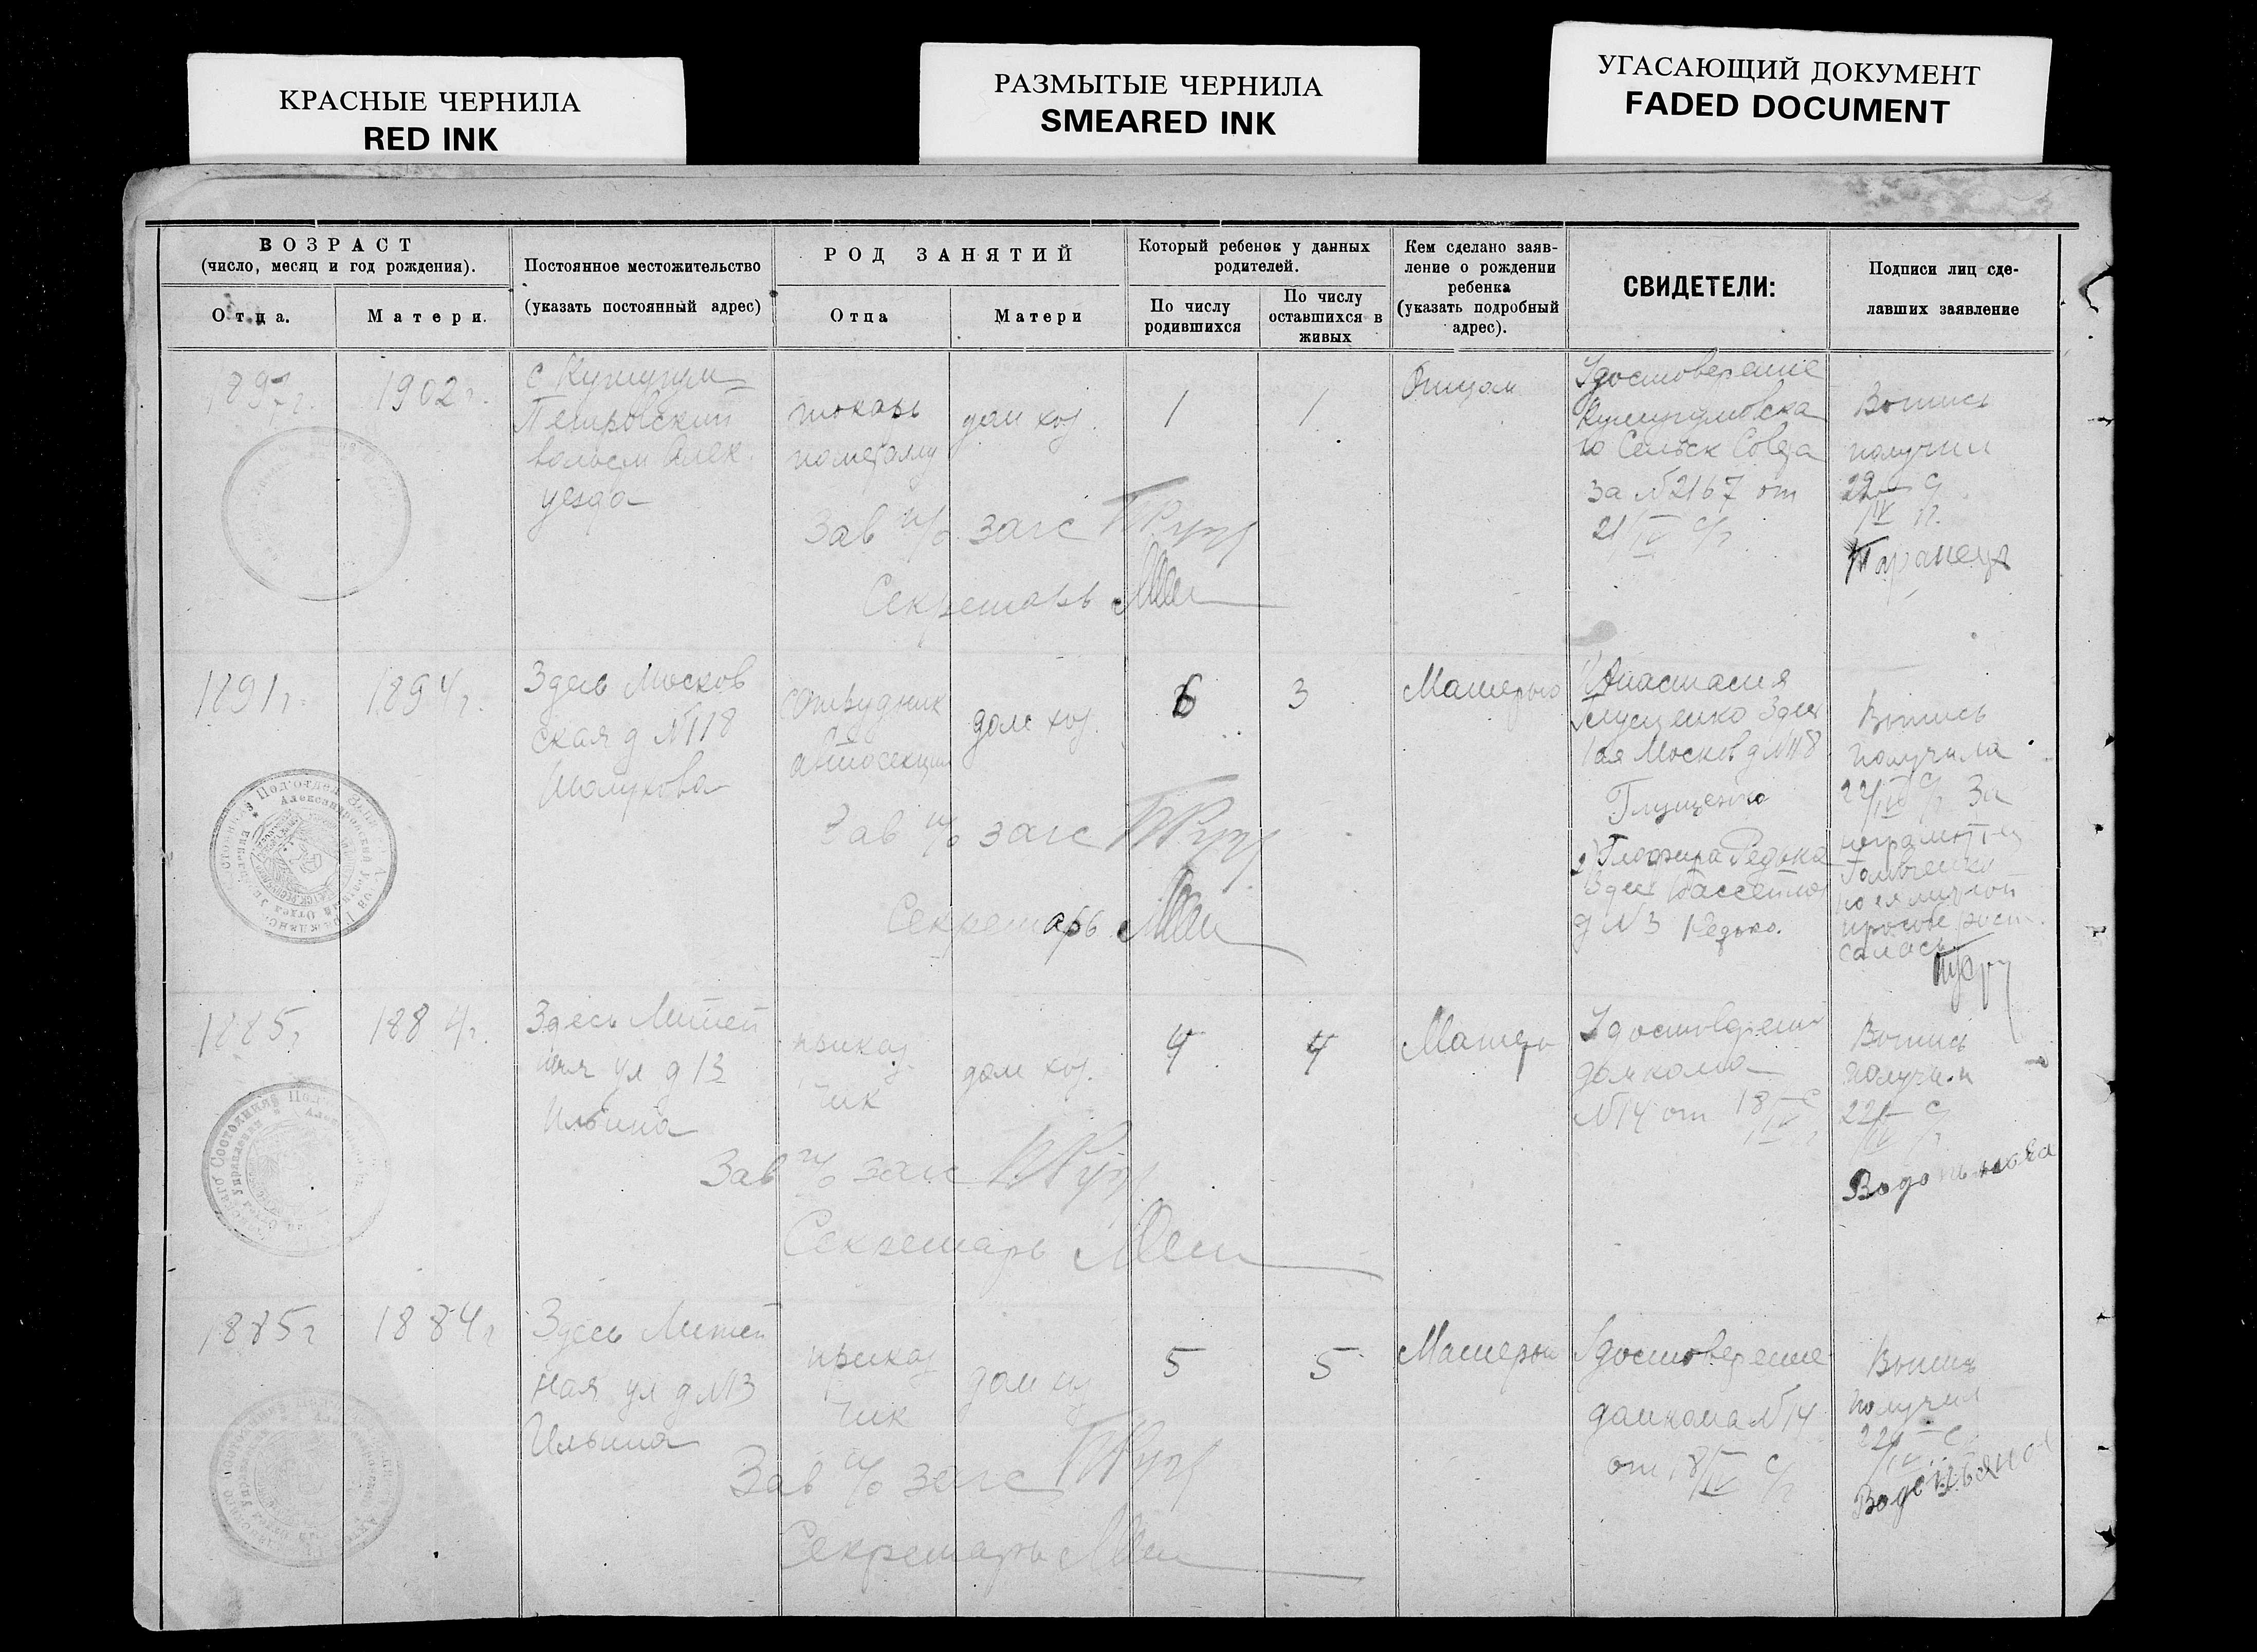 КРАСНЫЕ ЧЕРНИЛА
RED INK
РАЗМЫТЫЕ ЧЕРНИЛА
SMEARED INK
УГАСАЮЩИЙ ДОКУМЕНТ
FADED DOCUMENT
ВОЗРАСТ
(число, месяц и год рождения).
Отца.
Матери.
Постоянное местожительство
(указать постоянный адрес)
РОД ЗАНЯТИЙ
Отца
Матери
Который ребенок у данных
родителей.
По числу
родившихся
По числу
оставшихся в
живых
Кем сделано заяв-
ление о рождении
ребенка
(указать подробный
адрес).
СВИДЕТЕЛИ:
Подписи лиц сде-
лавших заявление
1897г.
1902г.
с Кушугум
Петровский
волости Алек
уезда
токарь
по металлу
дом хоз.
1
1
Отцом
Удостоверение
Кушугумовска
го Сельск Совета
за №2167 от
21/IV с/г
Выпись
получил
22/IV с/г.
Таранец
Зав п/о загс
Секретарь
1891г.
1894г.
Здесь Москов
ская д №118
Шалухова
сотрудник
автосекции
дом хоз.
6
3
Матерью
1) Анастасия
Глущенко Здесь
1ая Москов д №118
Глущенко
2) Глафира Редька
Здесь Бассейная
д №3 Редько.
Выпись
получила
22/IV с/г За
неграмотн
по ея личной
просьбе расп
салась
Зав п/о загс
Секретарь
1885г
1884г.
Здесь Литей
ная ул д 13
Ильина
приказ
чик
дом хоз.
4
4
Матерью
Удостоверени
домкома
№14 от 18/IV с/г
Выпись
получил
22/IV с/г
Водопьянова
Зав п/о загс
Секретарь
1885г
1884г
Здесь Литей
ная ул д №13
Ильина
приказ
чик
дом хоз
5
5
Матерью
Удостоверение
домкома №14
от 18/IV с/г
Выпись
получил
22/IV с
Водопьянов
Зав п/о загс
Секретарь